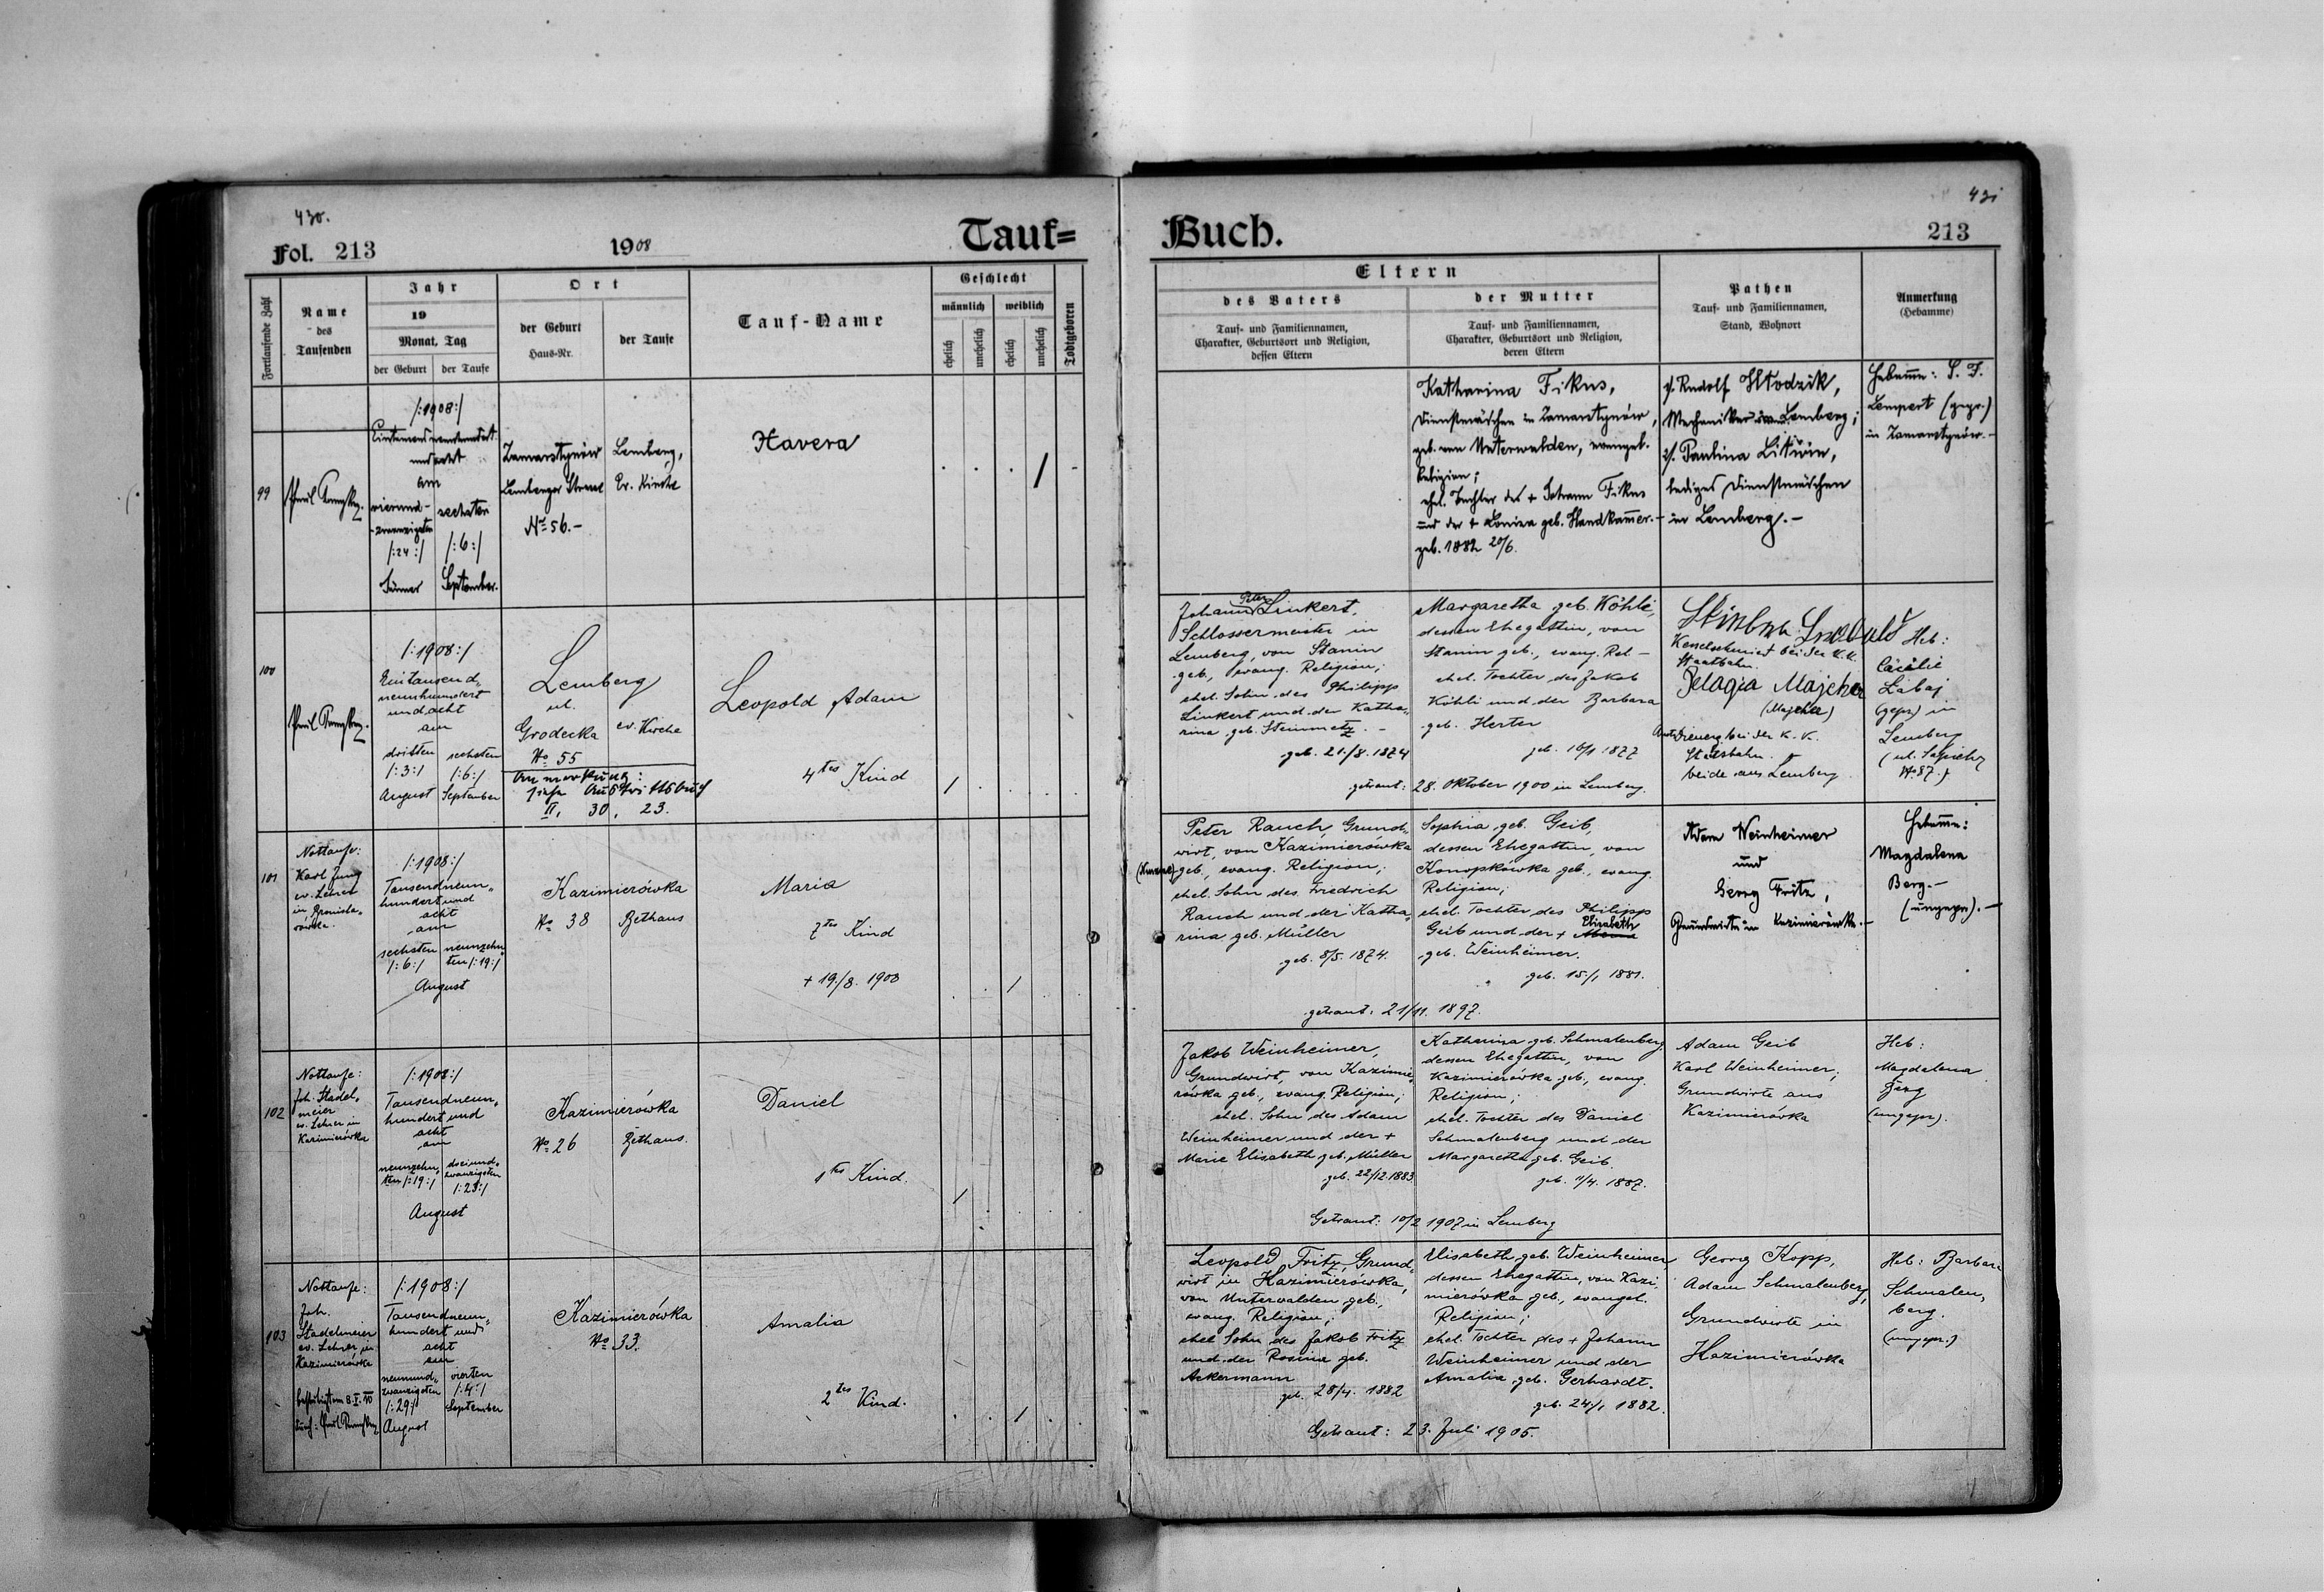 430.
Fol. 213
1908
Tauf=
Fortlaufende Zahl
Name
des
Taufenden
Jahr
19
Monat, Tag
der Geburt
der Taufe
Ort
der Geburt
Haus-Nr.
der Taufe
Tauf-Name
Geschlecht
männlich
weiblich
ehelich
unehelich
ehelich
unehelich
Todtgeboren
99
/:1908:/
Eintausendneunhundert
und acht
am
vierund-
zwanzigsten
/:24:/
Jänner
sechsten
/:6:/
September.
Zamarstynów
Lemberger Strasse
No 56.-
Lemberg,
Ev. Kirche
Havera
100
/:1908:/
Eintausend„
neunhundert
und acht
am
dritten
/:3:/
August
sechsten
/:6:/
September
Lemberg
ul.
Grodecka
No 55
ev. Kirche
Anmerkung:
siehe Austrittsbuch
II, 30, 23.
Leopold Adam
4tes Kind
101
Nottaufe:
Karl Jung
ev. Lehrer
in Bronisla„
rówka.
/:1908:/
Tausendneun„
hundert und
acht
am
sechsten
/:6:/
neunzehn„
ten /:19:/
August
Kazimierówka
No 38
Bethaus
Maria
7tes Kind
+ 19./8. 1908
102
Nottaufe:
Joh. Stadel„
meier
ev. Lehrer in
Kazimierówka
/:1908:/
Tausendneun„
hundert und
acht
am
neunzehn„
ten /:19:/
dreiund„
zwanzigsten
/:23:/
August
Kazimierówka
No 26
Bethaus.
Daniel
1tes Kind.
103
Nottaufe:
Joh.
Stadelmeier
ev. Lehrer, in
Kazimierówka
/:1908:/
Tausendneun„
hundert und
acht
am
neunund„
zwanzigsten
/:29:/
August
vierten
/:4:/
September
Kazimierówka
No 33.
Amalia
2tes Kind.
431
Buch.
213
Eltern
des Vaters
Tauf- und Familiennamen,
Charakter, Geburtsort und Religion,
dessen Eltern
der Mutter
Tauf- und Familiennamen,
Charakter, Geburtsort und Religion,
deren Eltern
Pathen
Tauf- und Familiennamen,
Stand, Wohnort
Anmerkung
(Hebamme)
Katharina Fikus,
Dienstmädchen in Zamarstynów,
geb. von Unterwalden, evangel.
Religion;
ehel. Tochter des + Johann Fikus
und der + Louisa geb. Handkamer.-
geb. 1882 20/6.
1/. Rudolf Hłodzik,
Mechaniker in Lemberg;
2/. Paulina Litwin,
lediges Dienstmädchen
in Lemberg.-
Hebamme: S. F.
Lempert (gepr.)
in Zamarstynów.-
Johann Peter Linkert,
Schlossermeister in
Lemberg, von Stanin
geb., evang. Religion;
ehel. Sohn des Philipp
Linkert und der Katha„
rina geb. Steinmetz.-
geb. 21./8. 1874
Margaretha geb. Köhli,
dessen Ehegattin, von
Stanin geb., evang. Rel.-
ehel. Tochter des Jakob
Köhli und der Barbara
geb. Herter
geb. 10/1 1877
getraut: 28. Oktober 1900 in Lemberg.
Kesselschmied bei der k.k.
Staatbahn.
Pelagia Majcher
(Majcher)
bei der k. k.
Staatsbahn.
beide aus Lemberg
Heb:
Cäcilie
Łabaj
(gepr) in
Lemberg
(ul. Sapiehy
No 87.)
Peter Rauch, Grund„
wirt, von Kazimierówka
geb., evang. Religion;
ehel. Sohn des Friedrich
Rauch und der Katha„
rina geb. Müller
geb. 8/5. 1874.
Sophia geb. Geib,
dessen Ehegattin, von
Konopkówka geb., evang.
Religion;
ehel. Tochter des Philipp
Geib und der + Elisabeth
geb. Weinheimer.
geb. 15./1 1881.
getraut: 21/11. 1897.
Adam Weinheimer
und
Georg Fritz,
Grundwirte in Kazimierówka.-
Hebamme:
Magdalena
Berg.-
(ungepr).-
Jakob Weinheimer,
Grundwirt, von Kazimie„
rówka geb., evang. Religion;
ehel. Sohn des Adam
Weinheimer und der +
Marie Elisabeth geb. Müller
geb. 22/12. 1883
Katharina geb. Schmalenberg
dessen Ehegattin, von
Kazimierówka geb., evang.
Religion;
ehel. Tochter des Daniel
Schmalenberg und der
Margaretha geb. Geib.
geb. 11/4. 1887.
Getraut: 10/2 1907 in Lemberg
Adam Geib
Karl Weinheimer;
Grundwirte aus
Kazimierówka
Heb:
Magdalena
Berg
(ungepr).
Leopold Fritz, Grund„
wirt in Kazimierówka,
von Unterwalden geb.,
evang. Religion;
ehel. Sohn des Jakob Fritz
und der Rosina geb.
Ackermann
geb. 28/4. 1882
Elisabeth geb. Weinheimer
dessen Ehegattin, von Kazi„
mierówka geb., evangel.
Religion;
ehel. Tochter des + Johann
Weinheimer und der
Amalia geb. Gerhardt.
geb. 24/1 1882.
Getraut: 23. Juli 1905.
Georg Kopp,
Adam Schmalenberg,
Grundwirte in
Kazimierówka
Heb: Barbara
Schmalen„
berg.
(ungepr.)